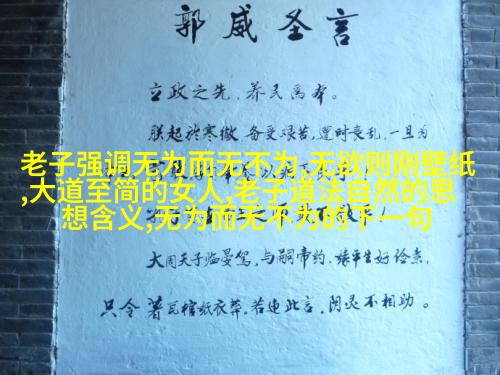 郭威圣言
立政之先.养民为本。
朕起於寒微 备受艰苦,遭时丧乱,一旦为
老子强调无为而无不为,无欲则刚壁纸
,大道至简的女人,老子道法自然的思
想含义,无为而无不为的下一句
大周天子临晏驾,与嗣帝约,缘平生好俭素,
只令著瓦棺纸衣葬,若违此言,阴灵不相助。